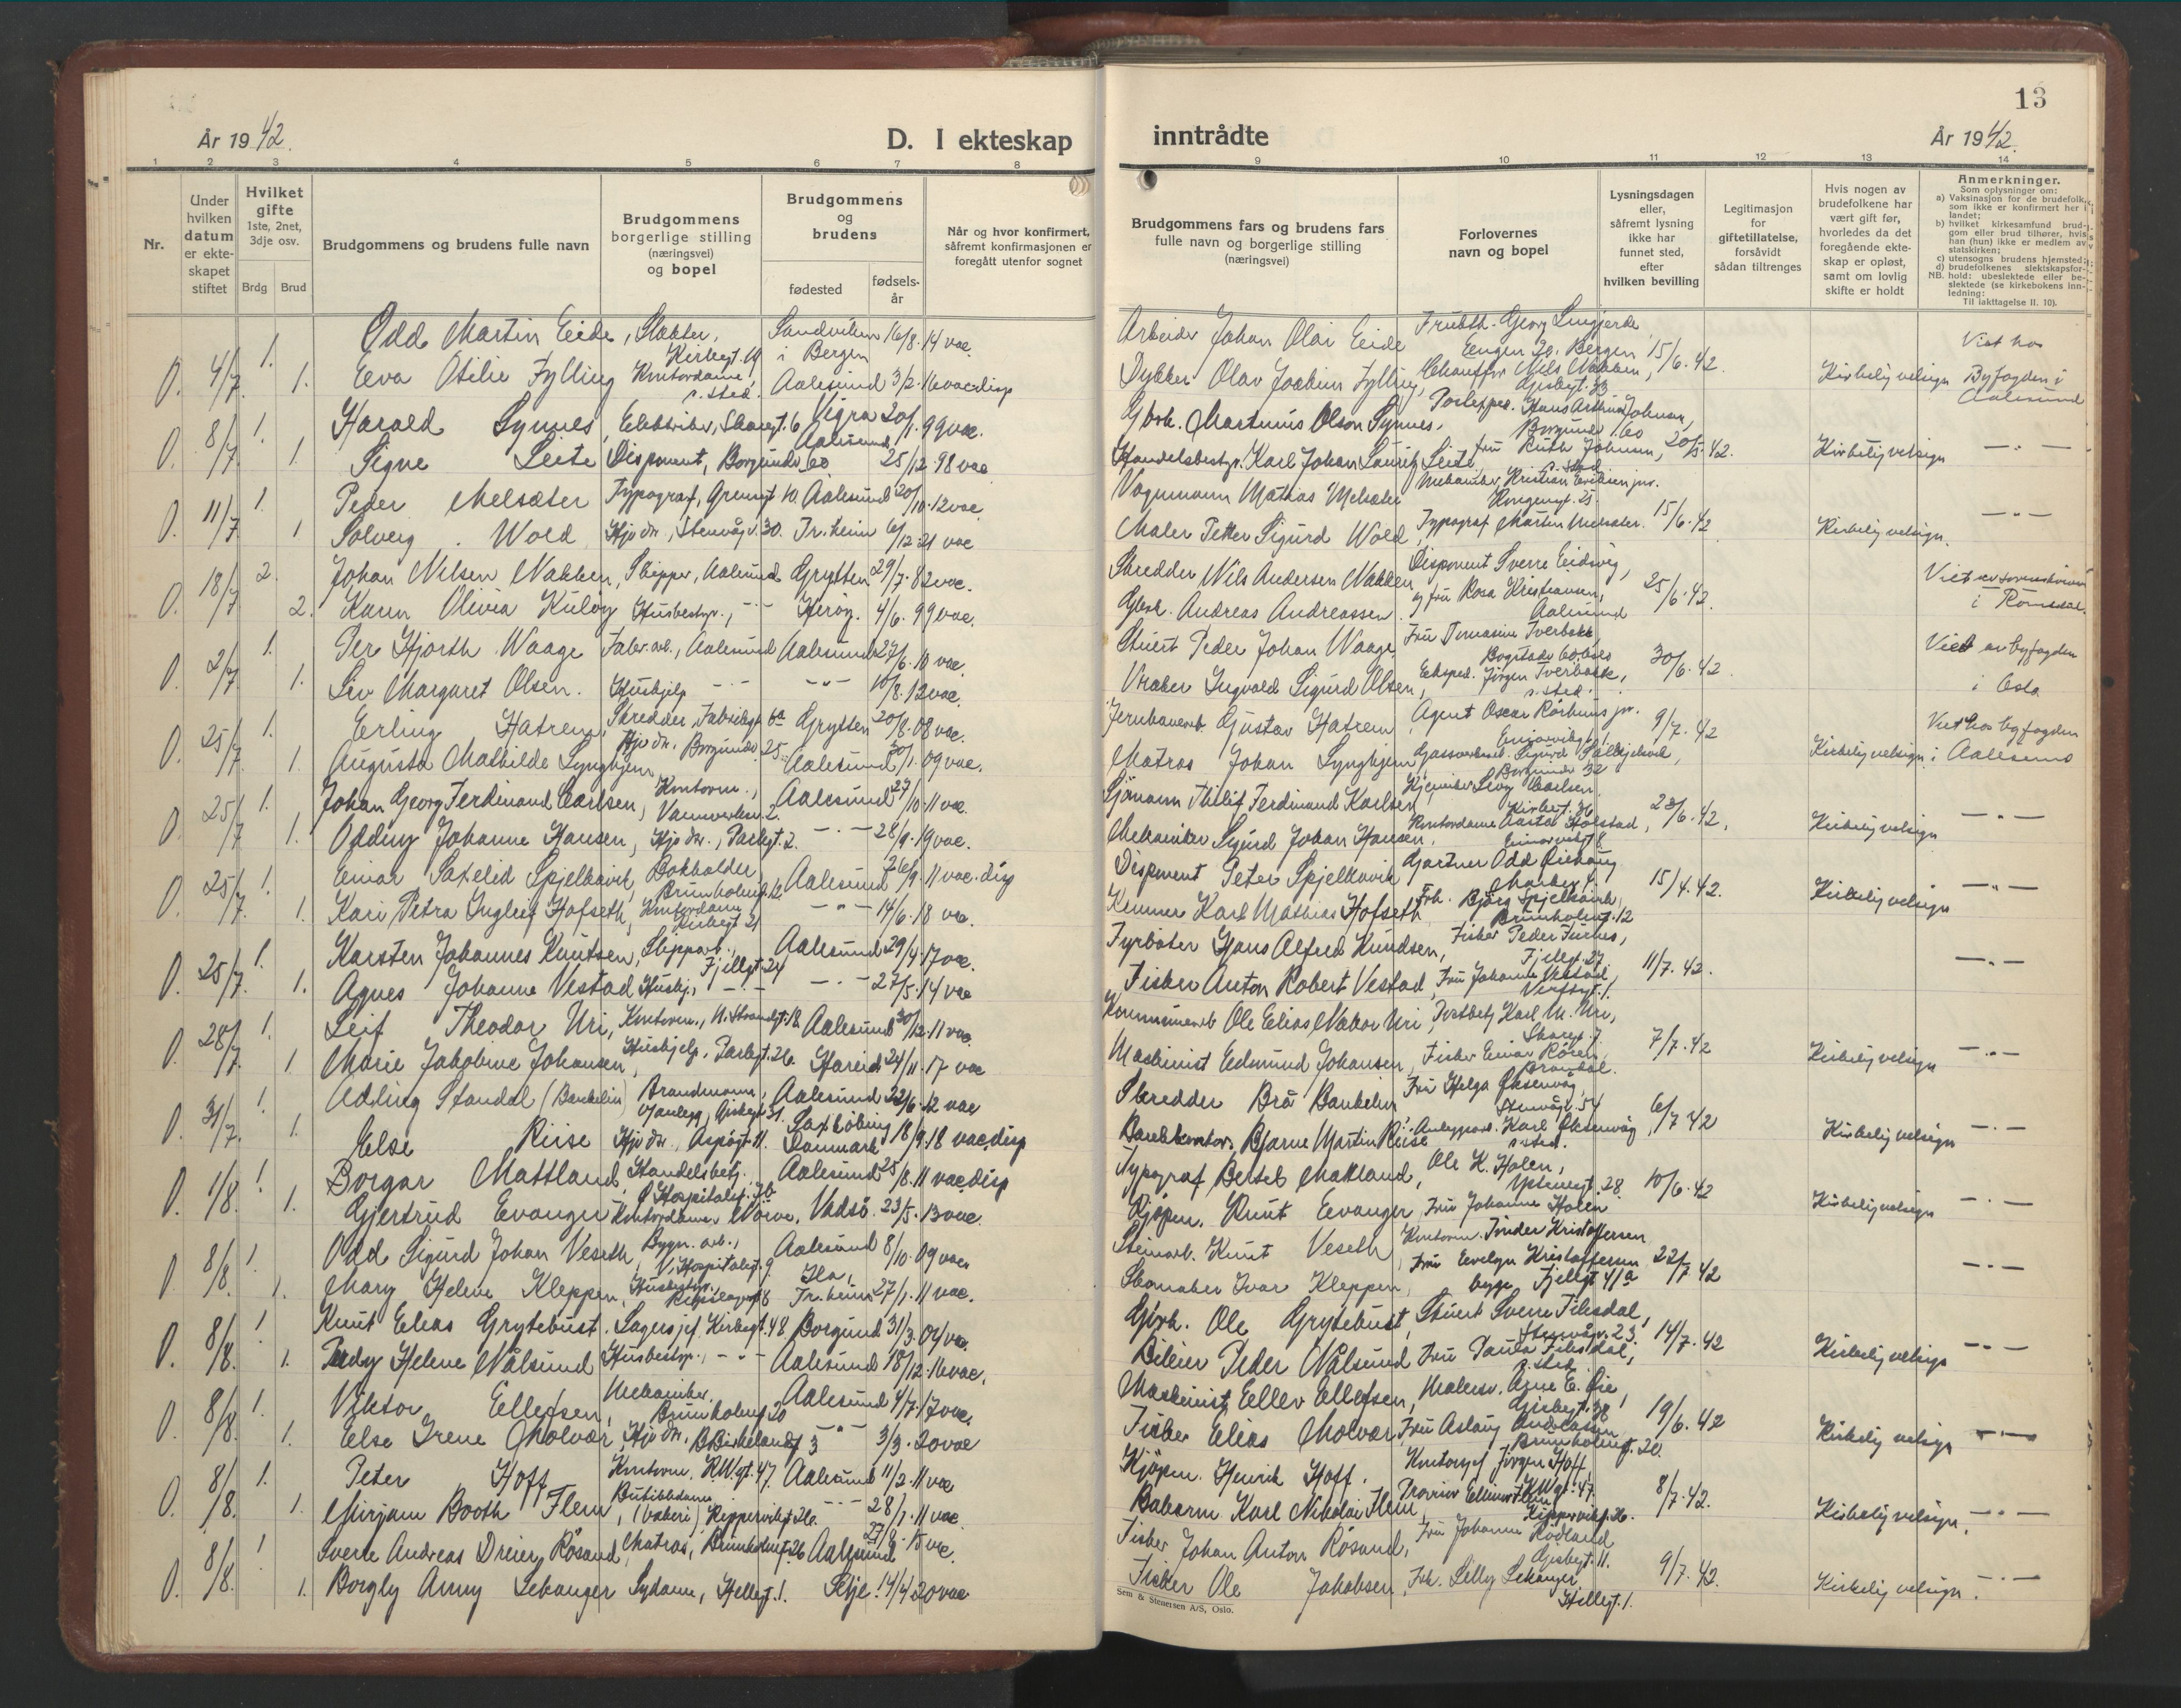 13
År 1942.
D. I ekteskap
inntrådte
År 1942.
1 2 3 4 5 6 7 8
9 10 11 12 13 14
Nr.
Under hvilken datum er ekteskapet stiftet
Hvilket gifte
1ste, 2net, 3dje osv.
Brdg Brud
Brudgommens og brudens fulle navn
Brudgommens borgerlige stilling (næringsvei) og bopel
Brudgommens og brudens
fødested
fødsels-år
Når og hvor konfirmert, såfremt konfirmasjonen er foregått utenfor sognet
Brudgommens fars og brudens fars fulle navn og borgerlige stilling (næringsvei)
Forlovernes navn og bopel
Lysningsdagen eller, såfremt lysning ikke har funnet sted, efter hvilken bevilling
Legitimasjon for giftetillatelse, forsåvidt sådan tiltrenges
Hvis nogen av brudefolkene har vært gift før, hvorledes da det foregående ekteskap er opløst, samt om lovlig skifte er holdt
Anmerkninger.
Som oplysninger om:
a) Vaksinasjon for de brudefolk, som ikke er konfirmert her i landet;
b) hvilket kirkesamfund brudgom eller brud tilhører, hvis han (hun) ikke er medlem av statskirken;
c) utensogns brudens hjemsted;
d) brudefolkenes slektskapsforhold: ubeslektede eller beslektede (se kirkebokens innledning:
NB.
Til iakttagelse II. 10).
O. 4/7 1. Odd Martin Eide, Slakter, Kirkegt. 19 Sandviken i Bergen 16/8. 14 vac.
1. Eva Otilie Fylling Kontordame, s. sted. Aalesund 3/2. 16 vac. disp
Arbeider Johan Olai Eide
Dykker Olav Joakim Fylling, Chauffør Nils Nakken, 15/6. 42. Kirkelig velsign
Viet hos Byfogden i Aalesund
O. 8/7 1. Harald Synnes, Elektriker, Skaregt. 6 Vigra 20/1. 99 vac.
1. Signe Leite Disponent, Borgundv. 60 Aalesund 25/12. 98 vac
Gbrk. Martinus Olson Synnes, Borgundv. 60
Handelsbestyr. Karl Johan Lauritz Leite, fru Ruth Johnsen, s. sted 20/5. 42. Kirkelig velsign — " —
O. 11/7 1. Peder Melsæter Typograf, Grensgt 10. Aalesund 20/10. 12 vac
1 Solveig Wold Hjv. dtr., Stenvåg v. 30. Tr. heim 6/12. 21 vac
Vognmann Mathias Melsæter Mekaniker, Kristian Eriksen jnr. Kongensgt. 25.
Maler Petter Sigurd Wold, Typograf Martin Melsæter. 15/6. 42 Kirkelig velsign. — " —
O. 18/7 2. Johan Nilsen Nakken, Skipper, Aalesund Grytten 29/7. 82 vac.
2. Karen Olivia Kuløy Husbestyr., — " — Herøy. 4/6. 99 vac.
Skredder Nils Andersen Nakken Disponent Sverre Eidsvig,
Gbrk. Andreas Andreassen og fru Rosa Kristiansen, Aalesund 25/6. 42.
Viet av sorenskriveren i Romsdal.
O. 2/7 1. Per Hjorth Waage Fabr. arb., Aalesund Aalesund 27/6. 18 vac.
1. Liv Margaret Olsen. Hushjelp — " — — " — 10/8. 12 vac.
Stuert Peder Johan Waage Fru Tomasine Tverbakk,
Vraker Ingvald Sigurd Olsen, Eksped. Jørgen Tverbakk, s. sted. 30/6. 42
Viet av byfogden i Oslo
O. 25/7 1. Erling Hatrem, Skredder, Fabrikgt. 6a Grytten 20/8. 08 vac.
1. Augusta Mathilde Lyngheim Hjv. dtr. Borgundv. 25 Aalesund 30/1. 09 vac.
Jernbanearb. Gustav Hatrem, Agent Oscar Rörhuus jnr. 9/7. 42
Matros Johan Lyngheim Borgundv 32 Kirkelig velsign
Viet hos byfogden i Aalesund
O. 25/7 1. Johan Georg Ferdinand Carlsen, Kontorm., Vannverkv. 2. Aalesund 27/10. 11 vac.
1. Oddny Johanne Hansen, Hjv. dtr., Parkgt. 2. — " — 28/9. 19 vac.
Sjömann Thilif Ferdinand Karlsen Carlsen, Kirkegt. 36
Mekaniker Sigurd Johan Hansen, Kontordame Aasta Holstad, 23/6. 42, Kirkelig velsign — " —
O. 25/7. 1. Einar Saxelid Spjelkavik, Bokholder, Brunholmgt. 12 Aalesund 26/9. 11 vac. disp
1. Kari Petra Ingleif Hofseth, Kontordame Kirkegt 21 — " — 14/6. 18 vac.
Disponent Peter Spjelkavik Gartner Odd
Kemner Karl Mathias Hofseth Frk. Bjørg Spjelkavik, Brunholmgt. 12 15/4. 42. Kirkelig velsign — " —
O. 25/7. 1. Karsten Johannes Knutsen, Slipparb., Fjellgt. 24 Aalesund 29/4. 17 vac.
1. Agnes Johanne Vestad Hushj., — " — — " — 27/5. 14 vac
Fyrböter Hans Alfred Knudsen, Fisker Peder Furnes, Fjellgt. 27.
Fisker Anton Robert Vestad, Fru Johanne Vestad, Verftsgt. 1. 11/7. 42. — " —
O. 28/7 1. Leif Theodor Uri, Kontorm., N. Strandgt. 18. Aalesund 30/12. 11 vac.
1 Marie Jakobine Johansen, Hushjelp, Parkgt. 26. Hareid 24/11. 17 vac
Kommunearb Ole Elias Nakor Uri, Postbetj Karl M. Uri, Skaregt 7.
Maskinist Edmund Johansen, Fisker Einar Rören, 7/7. 42 Kirkelig velsign — " —
O. 31/7. 1. Adling Standal (Bankelin) Brandmann, Aalesund 22/6. 12 vac
1. Else Riise Hjv. dtr., Aspøgt. 11. Saxkøbing Danmark 18/9. 18 vac. disp
Skredder Brå Bankelin Fru Helga Oksenvåg, Stenvågv. 54
Bankkontors. Bjarne Martin Riise Anleggsarb. Karl Oksenvåg, s. sted. 6/7. 42 Kirkelig velsign — " —
O. 1/8. 1. Borgar Mattland, Handelsbetj. Ø. Hospitalsgt. 7b Aalesund 25/8. 11 vac. disp
1. Gjertrud Evanger Kontordame, Nörve. Vadsö. 23/5. 13 vac.
Typograf Bertel Mattland, Ole K. Holen, 28.
Kjöpm. Knut Evanger, Fru Johanne Holen 10/6. 42 Kirkelig velsign — " —
O 8/8. 1. Odd Sigurd Johan Veseth, Bygn. arb., V. Hospitalsgt. 9. Aalesund 8/10. 09 vac.
1. Mary Helene Kleppen, Husbestyr., Ila, Tr. heim 27/1. 11 vac.
Stenarb. Knut Veseth, Kontorm. Kristoffersen
Skomaker Ivar Kleppen, Fru Evelyn Kristoffersen begge Fjellgt 41a 22/7 42 — " —
O. 8/8. 1 Knut Elias Grytebust. Lagersjef, Kirkegt. 48. Borgund 31/3. 04 vac.
1. Pudy Helene Nålsund Husbestyr., — " — Aalesund 18/12. 16 vac.
Gbrk. Ole Grytebust, Stuert Sverre Filesdal, Stenvågv. 23.
Bileier Peder Nålsund Fru Paula Filesdal, s. sted. 14/7. 42 Kirkelig velsign — " —
O. 8/8. 1. Viktor Ellefsen, Mekaniker, Brunholmgt 20 Aalesund 4/7. 17 vac.
1. Else Irene Molvær, Hjv. dtr., 3 — " — 3/3. 20 vac
Maskinist Eller Ellefsen, Malersv. Arne E. Øie,
Fisker Elias Molvær, Fru Aslaug Andreassen Brunholmgt. 20. 19/6. 42 Kirkelig velsign — " —
O. 8/8. 1. Peter Hoff Kontorm. R.W. gt. 47. Aalesund 11/2. 11 vac
1. Mirjam Booth Flem, Butikkdame (bakeri) Kippervikgt 26. — " — 28/1. 11 vac.
Kjöpm. Henrik Hoff. Kontorsjef Jörgen Hoff R.W. gt. 47.
Bakerm Karl Nikolai Flem, Kippervikgt. 26. 8/7. 42. Kirkelig velsign. — " —
O. 8/8. 1 Sverre Andreas Dreier Røsand, Matros, Brunholmgt. 26 Aalesund 27/8. 15 vac.
1. Borgly Anny Lekanger Sydame, Hellegt. 1. Selje 14/4 20 vac
Fisker Johan Anton Rösand, Fru Johanne Rödland Giskegt. 11.
Fisker Ole Jakobsen, Frk. Lilly Lekanger Hellegt. 1. 9/7. 42. Kirkelig velsign. — " —
Sem & Stenersen A/S, Oslo.